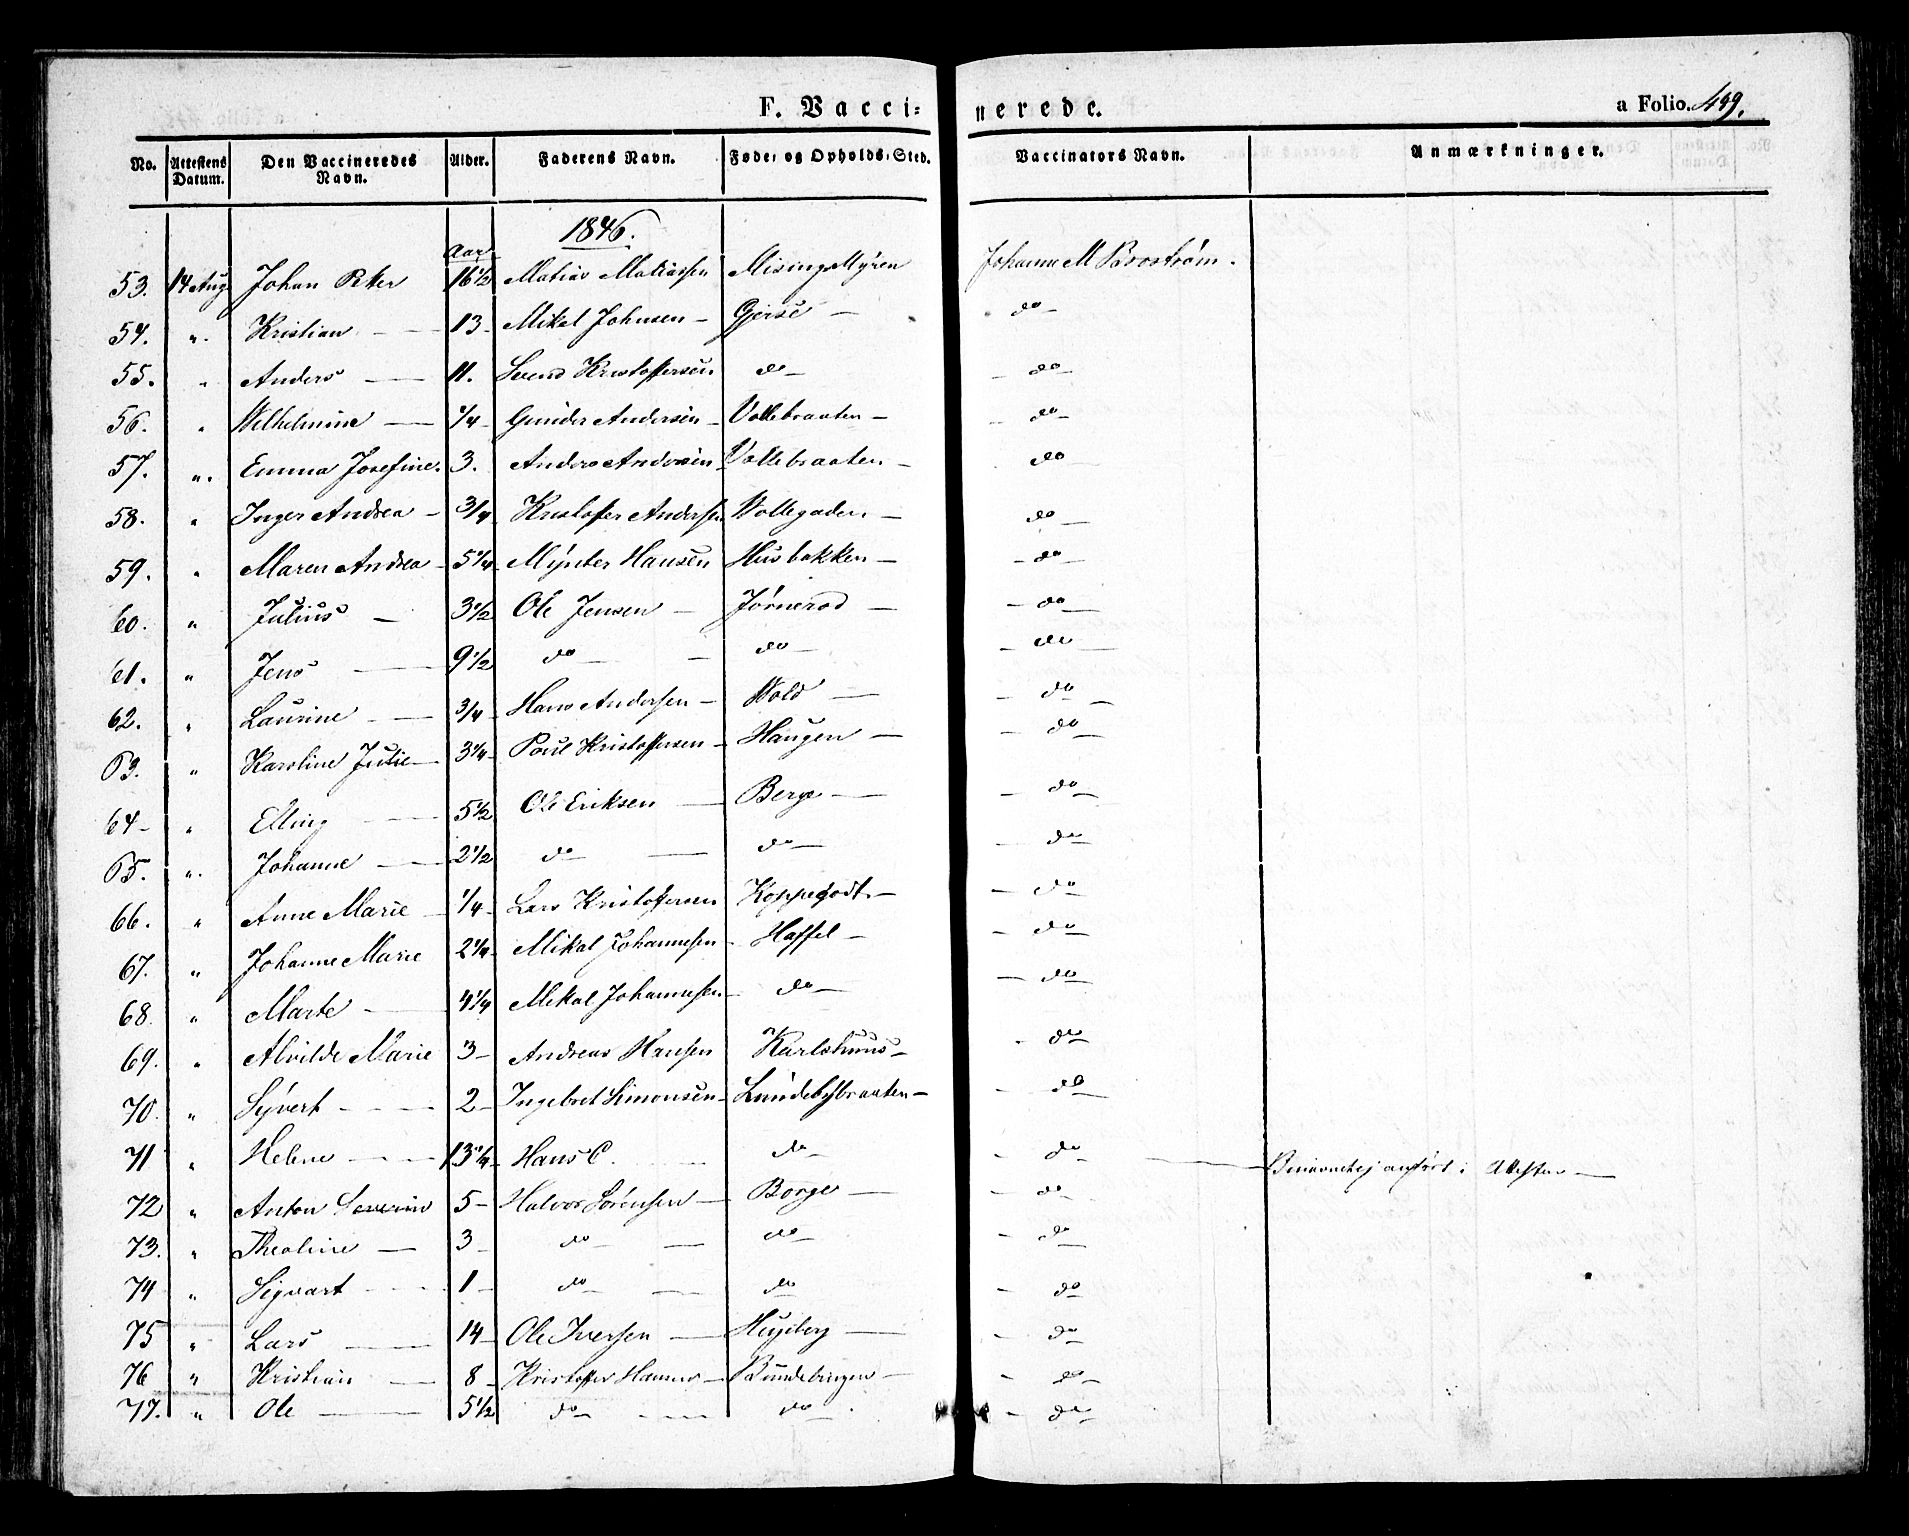 F. Vaccinerede.
a Folio. 499.
No. Attestens Datum. Den Vaccineredes Navn. Alder. Faderens Navn. Føde- og Opholds-Sted. Vaccinators Navn. Anmærkninger.
1846.
Aar
53. 14 Aug Johan Peter 16 1/2 Matias Matiassen Misings Myren Johanne M Brostrøm.
54. " Kristian 13 Mikel Johnsen Gjerse do
55. " Anders 11. Svend Kristoffersen do do
56. " Wilhelmine 1/4 Gunder Andersen Vollebraaten do
57. " Emma Josefine 3. Anders Andersen Vollebraaten do
58. " Inger Andrea 3/4 Kristoffer Andersen Wollegaden do
59. " Maren Andrea 5 1/4 Mÿnter Hansen Husbakken do
60. " Julius 3 1/2 Ole Jensen Jørnerød do
61. " Jens 9 1/2 do do do
62. " Laurine 3/4 Hans Andersen Wold do
63. " Karoline Julie 3 1/4 Poul Kristoffersen Haugen do
64 " Elling 5 1/2 Ole Eriksen Berge do
65. " Johanne 2 1/2 do do do
66. " Anne Marie 1/4 Lars Kristoffersen Koppegodt do
67. " Johanne Marie 2 1/4 Mikal Johannesen Haffel do
68 " Marte 4 1/4 Mikal Johannesen do do
69. " Alvilde Marie 3 Andreas Hansen Karlshuus do
70. " Syvert 2 Ingebret Simonsen Lundebybraaten do
71 " Helene 13 1/4 Hans C. do do ej anført i Attesten
72 " Anton Severin 5 Halvor Sørensen Borge do
73. " Theoline 3 do do do
74 " Sigvart 1 do do do
75 " Lars 14 Ole Iversen Hujberg do
76 " Kristian 8 Kristoffer Hansen Bundebingen do
77. " Ole 5 1/2 do do do